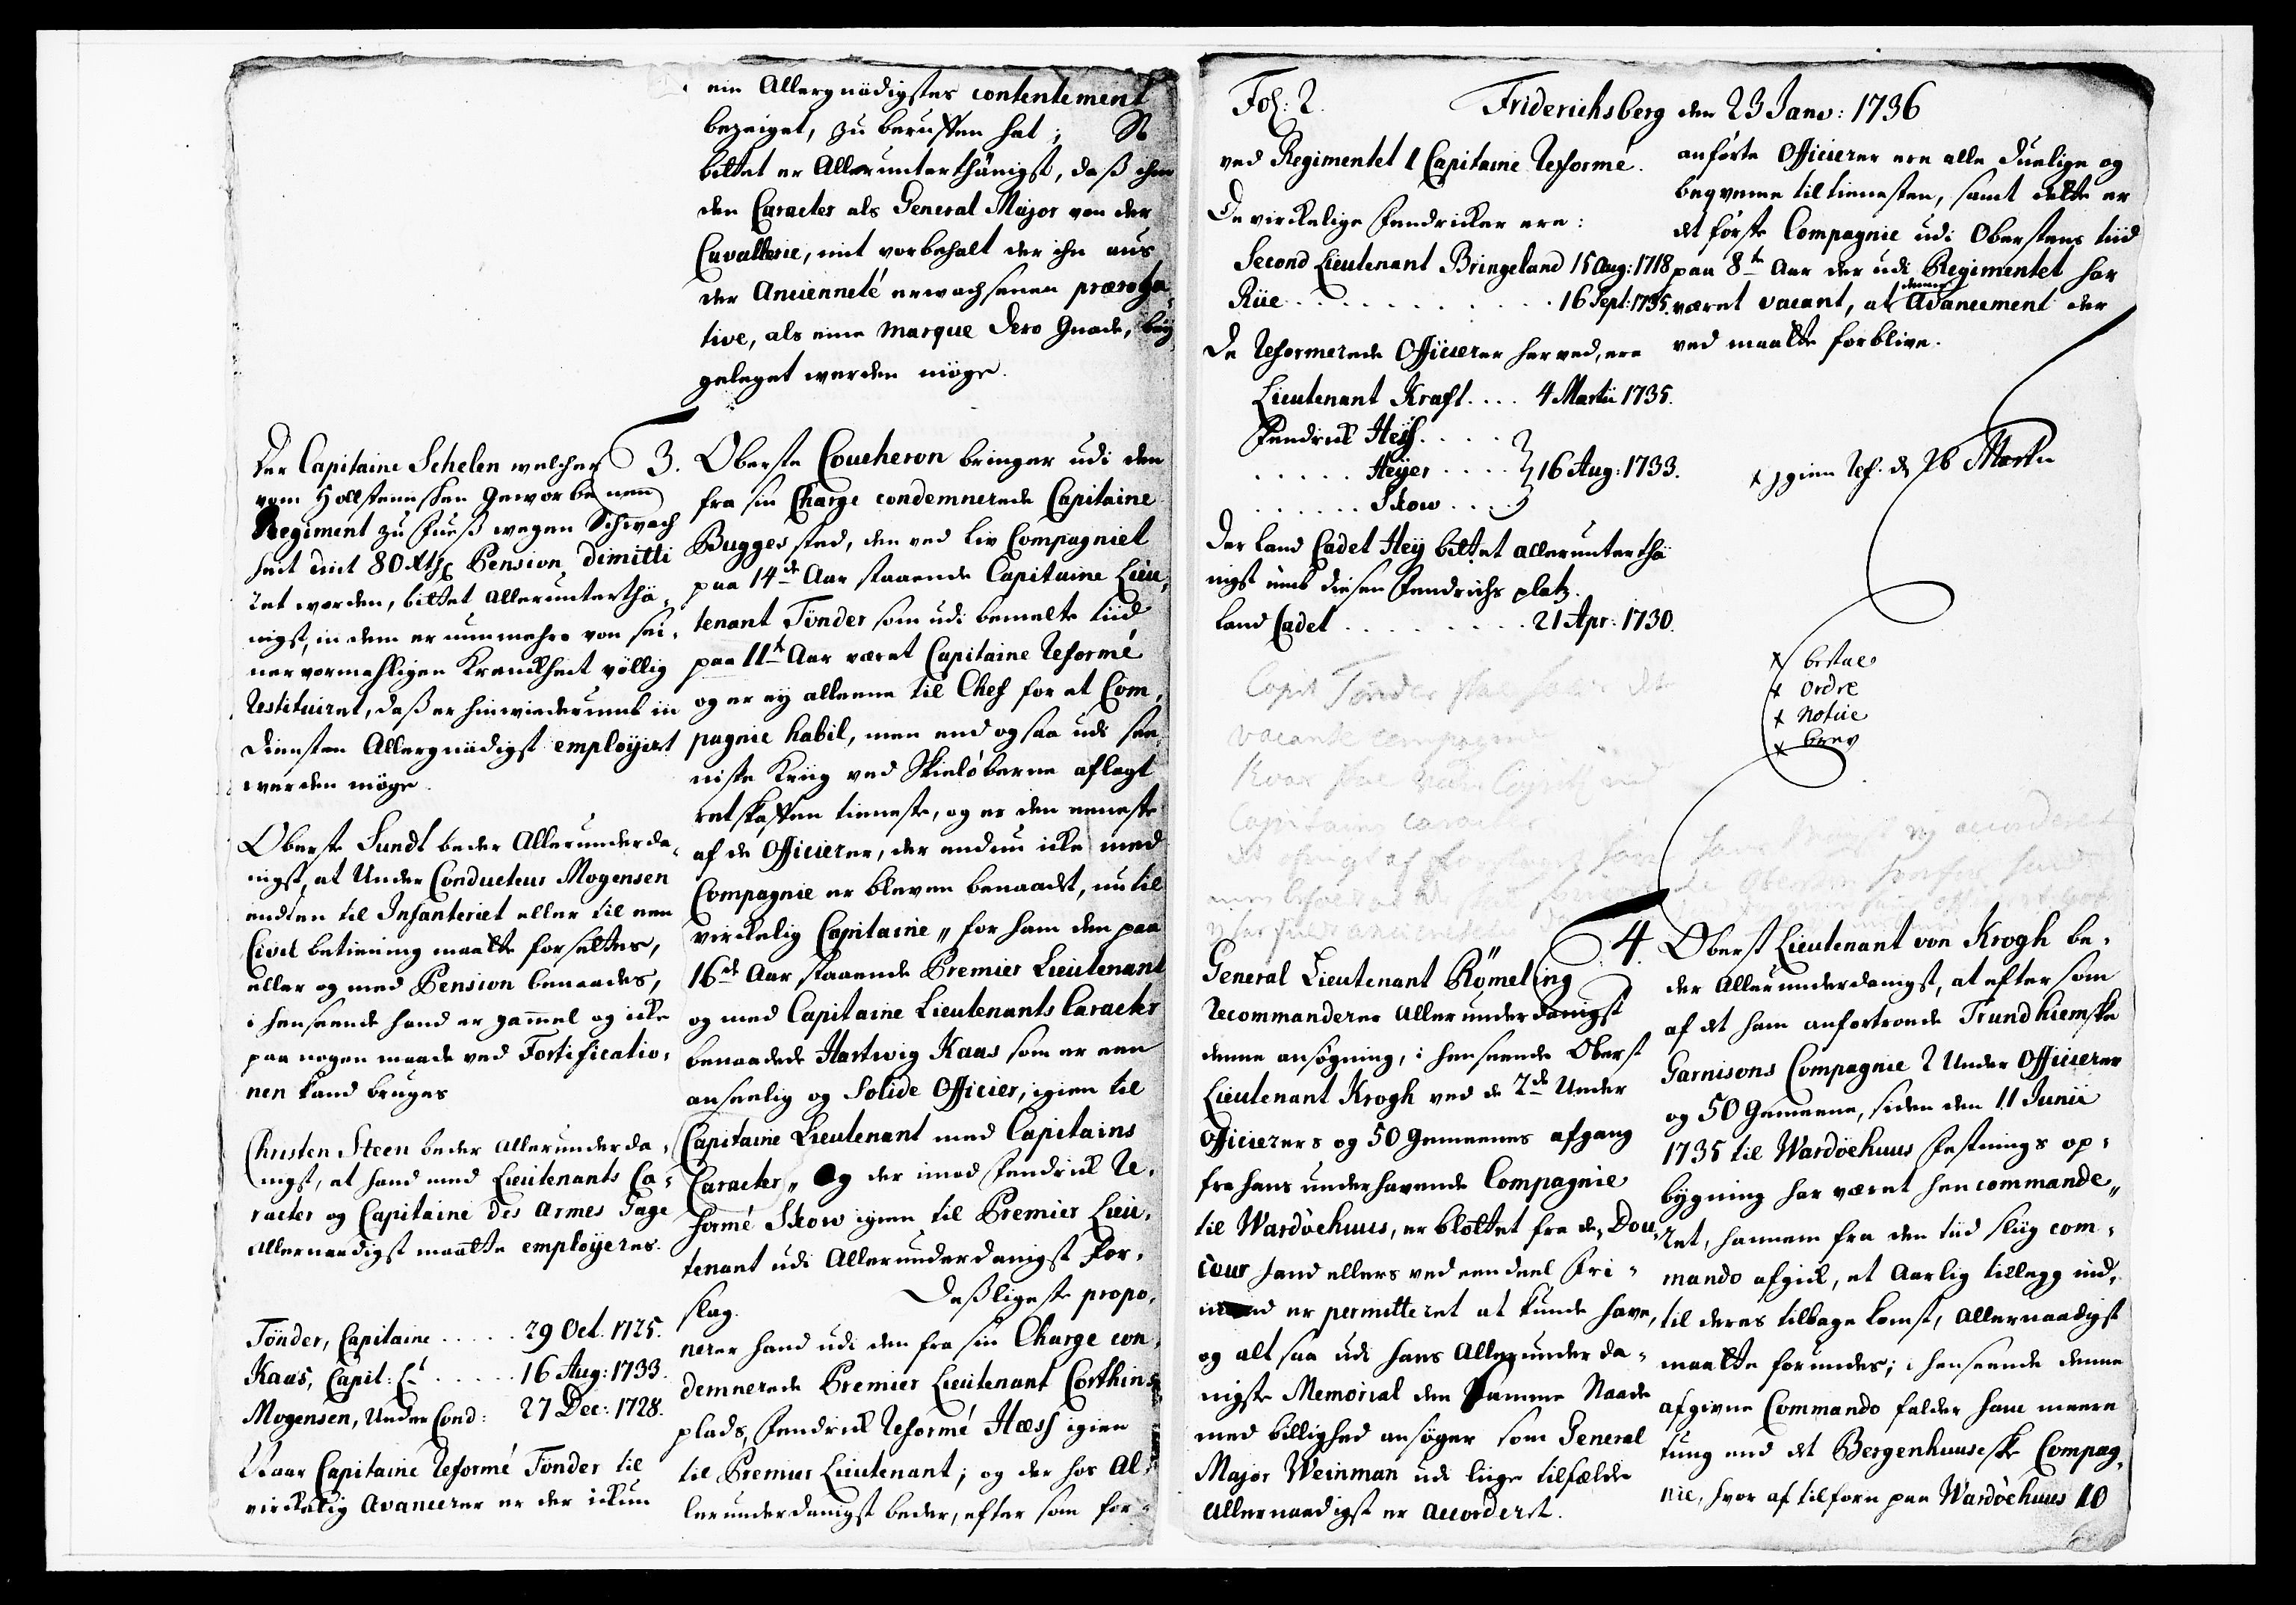 ein Allergnädigstes contentement
bezeiget, zu beruffen hat; So
bittet er Allerunterthänigst, daß ihm
den Caracter als General Major von der
Cavallerie, mit vorbehalt der ihm aus
der Ancienneté erwachsenen præroga,
tive, als eine marque dero Gnade, bey
geleget werden möge.
Der Capitaine Schelen welcher
vom Hollsteinischen Geworbenen
Regiment zu Fueß wegen Schwach
heit mit 80 Rthlr Pension dimitti
ret worden, bittet allerunterthä,
nigst, in dem er nunmehro von sei,
ner vormahligen Kranckheit völlig
restituiret, daß er hinwiederumb in
Diensten Allergnädigst employirt
werden möge.
Oberste Sundt beder Allerunderda,
nigst, at Under Conducteur Mogensen
endten til Infanteriet eller til een
Civil betiening maatte forsettes,
eller og med Pension benaades,
i henseende hand er gammel og icke
paa nogen maade ved Fortificatio,
nen kand bruges
Christen Steen beder allerunderda,
nigst, at hand med Lieutenants Ca,
racter og Capitaine des Armes Gage
allernaadigst maatte employeres.
Tönder, Capitaine ..... 29 Oct. 1725.
Kaas, Capit: Lt ..... 16 Aug: 1733.
Mogensen, Under Cond: 27 Dec: 1728.
Naar Capitaine Reformé Tönder til
virckelig avancerer er der ickun
3. Oberste Coucheron bringer udi den
fra sin Charge condemnerede Capitaine
Bugges sted, den ved Liv Compagniet
paa 14de Aar staaende Capitaine Lieu,
tenant Tönder som udi bemelte tiid
paa 11te Aar været Capitaine Reformé
og er ey alleene til Chef for et Com,
pagnie habil, men end og saa udi see,
niste Krig ved Skielöberne aflagt
retskaffen tieneste, og er den eeneste
af de Officierer, der endnu icke med
Compagnie er bleven benaadet, nu til
virckelig Capitaine,, for ham den paa
16de Aar staaende Premier Lieutenant
og med Capitaine Lieutenants Caracter
benaadede Hartwig Kaas som er een
anseelig og solide Officier, igien til
Capitaine Lieutenant med Capitains
Caracter,, Og der imod Fendrick Re,
formé Skow igien til Premier Lieu,
tenant udi Allerunderdanigst For,
slag. Desligeste propo,
nerer hand udi den fra sin Charge con,
demnerede Premier Lieutenant Corthins
plads, Fendrick Reformé Hæss igien
til Premier Lieutenant; og der hos Al,
lerunderdanigst beder, efter som for,
Fol: 2. Friderichsberg den 23 Janv: 1736
ved Regimentet 1 Capitaine Reformé.
De virckelige Fendricker ere:
Second Lieutenant Bringeland 15 Aug: 1718
Riie ............ 16 Sept: 1735.
De Reformerede Officierer herved, ere
Lieutenant Kraft .... 4 Martii 1735.
Fendrick Heiss .....
..... Heyer .... 16 Aug: 1733.
...... Skow ....
Der Land Cadet Hey bittet allerunterthä
nigst umb diesen Fendrichs platz.
Land Cadet ......... 21 Apr: 1730.
Capit Tönder skal
vacante compagnie
Capitains caracter
General Lieutenant Römeling
recommanderer allerunderdanigst
denne ansøgning, i henseende Oberst
Lieutenant Krogh ved de 2de Under
Officierers og 50 Gemeenes afgang
fra hans underhavende Compagnie
til Wardöehuus, er blottet fra de Dou,
ceur hand ellers ved een deel Fri,
er permitteret at kunde have,
og alt saa udi hans Allerunderda,
nigste Memorial den samme Naade
med billighed ansøger som General
Major Weinman udi liige tilfælde
Allernaadigst er accorderet.
anförte Officierer ere alle duelige og
beqvemme til tienesten, samt dette er
det første Compagnie udi Oberstens tiid
paa 8te Aar der udi Regimentet har
været vacant, at denne Avancement der
ved maatte forblive.
igien Ref. d 26 Martii
x bestal
x Ordre
x Notice
x brev
4. Oberst Lieutenant von Krogh be,
der Allerunderdanigst, at efter som
af det ham anfortroede Trundhiemske
Garnisons Compagnie 2 Under Officierer
og 50 Gemeene, siden den 11 Junii
1735 til Wardöehuus Festnings op,
bygning har været hen commande,,
ret, hannem fra den tiid sliig com,
mando afgick, et Aarlig tillegg ind,
til deres tilbagekomst, Allernaadigst
maatte forundes; i henseende denne
afgivne Commando falder ham meere
tung end det Bergenhuusiske Compag,
nie, hvor af tilforn paa Wardöehuus 10